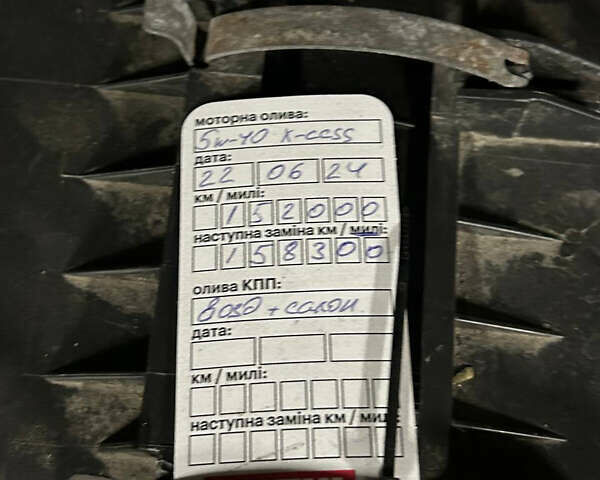 моторна олива:
5w-40 x-cess
дата:
22 06 24
км / милі:
152000
наступна заміна км / милі:
158300
олива КПП:
возд + салон
дата:
км / милі:
наступна заміна км / милі: